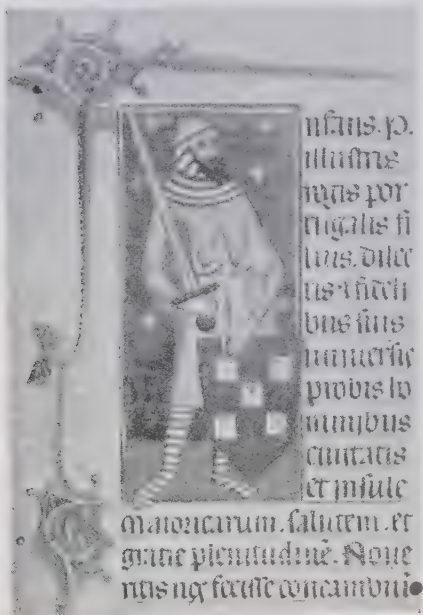 nfans. p.
illustris
regis por
tugalis fi
lius. dilec
tis ⁊ fideli
bus suis
uniuersis
probis ho
minibus
ciuitatis
et insule
maioricarum. salutem. et
gratie plenitudinē. Noue
ritis nos fecisse concambiū